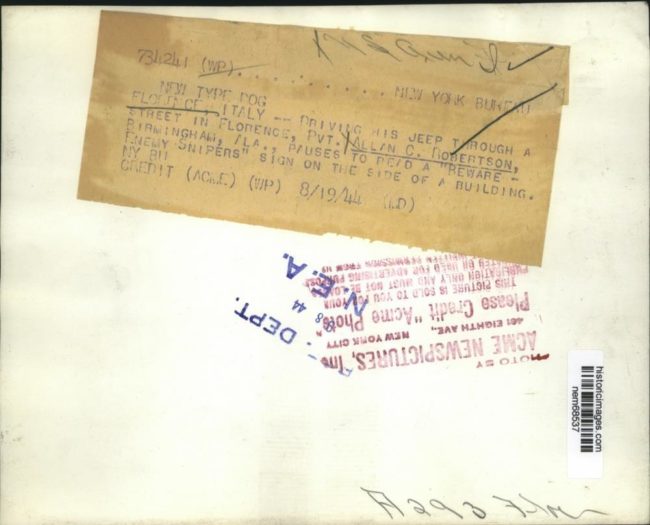 734241 (WP) . . . . . . . . . . NEW YORK BUREAU
NEW TYPE DOG
FLORENCE, ITALY -- DRIVING HIS JEEP THROUGH A
STREET IN FLORENCE, PVT. ALLAN C. ROBERTSON,
BIRMINGHAM, ALA., PAUSES TO READ A "BEWARE -
ENEMY SNIPERS" SIGN ON THE SIDE OF A BUILDING.
NY BU
CREDIT (ACME) (WP) 8/19/44
DEPT.
44
N.E.A.
PHOTO BY
ACME NEWSPICTURES, Inc
461 EIGHTH AVE., NEW YORK CITY
Please Credit "Acme Photo"
THIS PICTURE IS SOLD TO YOU FOR YOUR
PUBLICATION ONLY AND MUST NOT BE LOANED
OR USED FOR ADVERTISING PURPOSES
WRITTEN PERMISSION FROM US
historicimages.com
nem68537
A 293